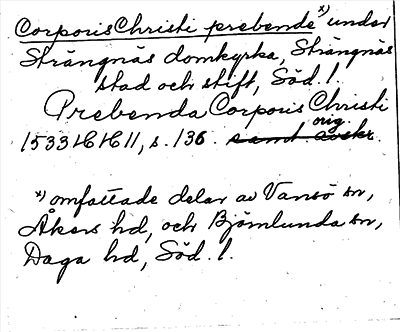 Corporis Christi prebende *) under
Strängnäs domkyrka, Strängnäs
stad och stift, Söd. l.
Prebenda Corporis Christi
orig.
1533 16/6 11, s. 136. samt. avskr.
*) omfattade delar av Vansö sn,
Åkers hd, och Björnlunda sn,
Daga hd, Söd. l.